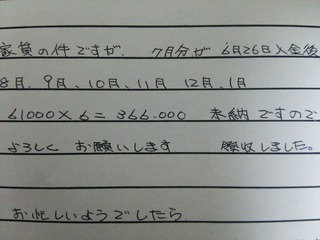 家賃の件ですが、7月分が 6月26日入金後
8月、9月、10月、11月 12月、1月
61000×6=366.000 未納ですので
よろしく お願いします 領収しました。
お忙しいようでしたら